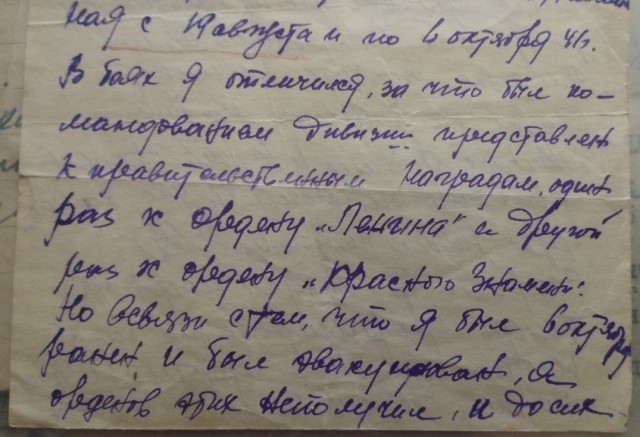 ная с 19 августа и по 6 октября 41г.
В боях я отличился, за что был ко-
мандованием дивизии представлен
к правительственным наградам, один
раз к ордену „Ленина" и другой
раз к ордену „Красного Знамени".
Но всвязи стем, что я был 6 октября
ранен и был эвакуирован, я
орденов этих неполучил, и до сих